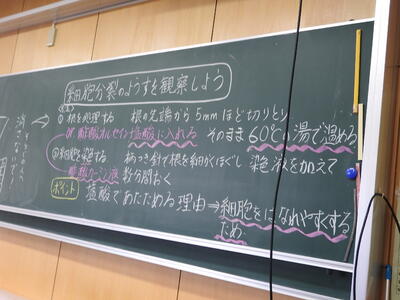 細胞分裂のようすを観察しよう
方法
① 根を処理する 根の先端から5mmほど切りとり
塩酸に入れる そのまま60℃の湯で温める
②細胞を染色する 柄つき針で根を細かくほぐし 染色液を加えて
数分間おく
ポイント 塩酸であたためる理由⇒細胞をはなれやすくする
ため